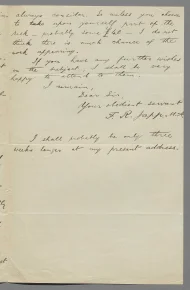 always consider. So unless you choose
to take upon yourself part of the
risk — probably some £40 — I do not
think there is much chance of the
work appearing.
If you have any further wishes
on the subject I shall be very
happy to attend to them.
I remain,
Dear Sir,
Your obedient servant
F. R.
I shall probably be only three
weeks longer at my present address.